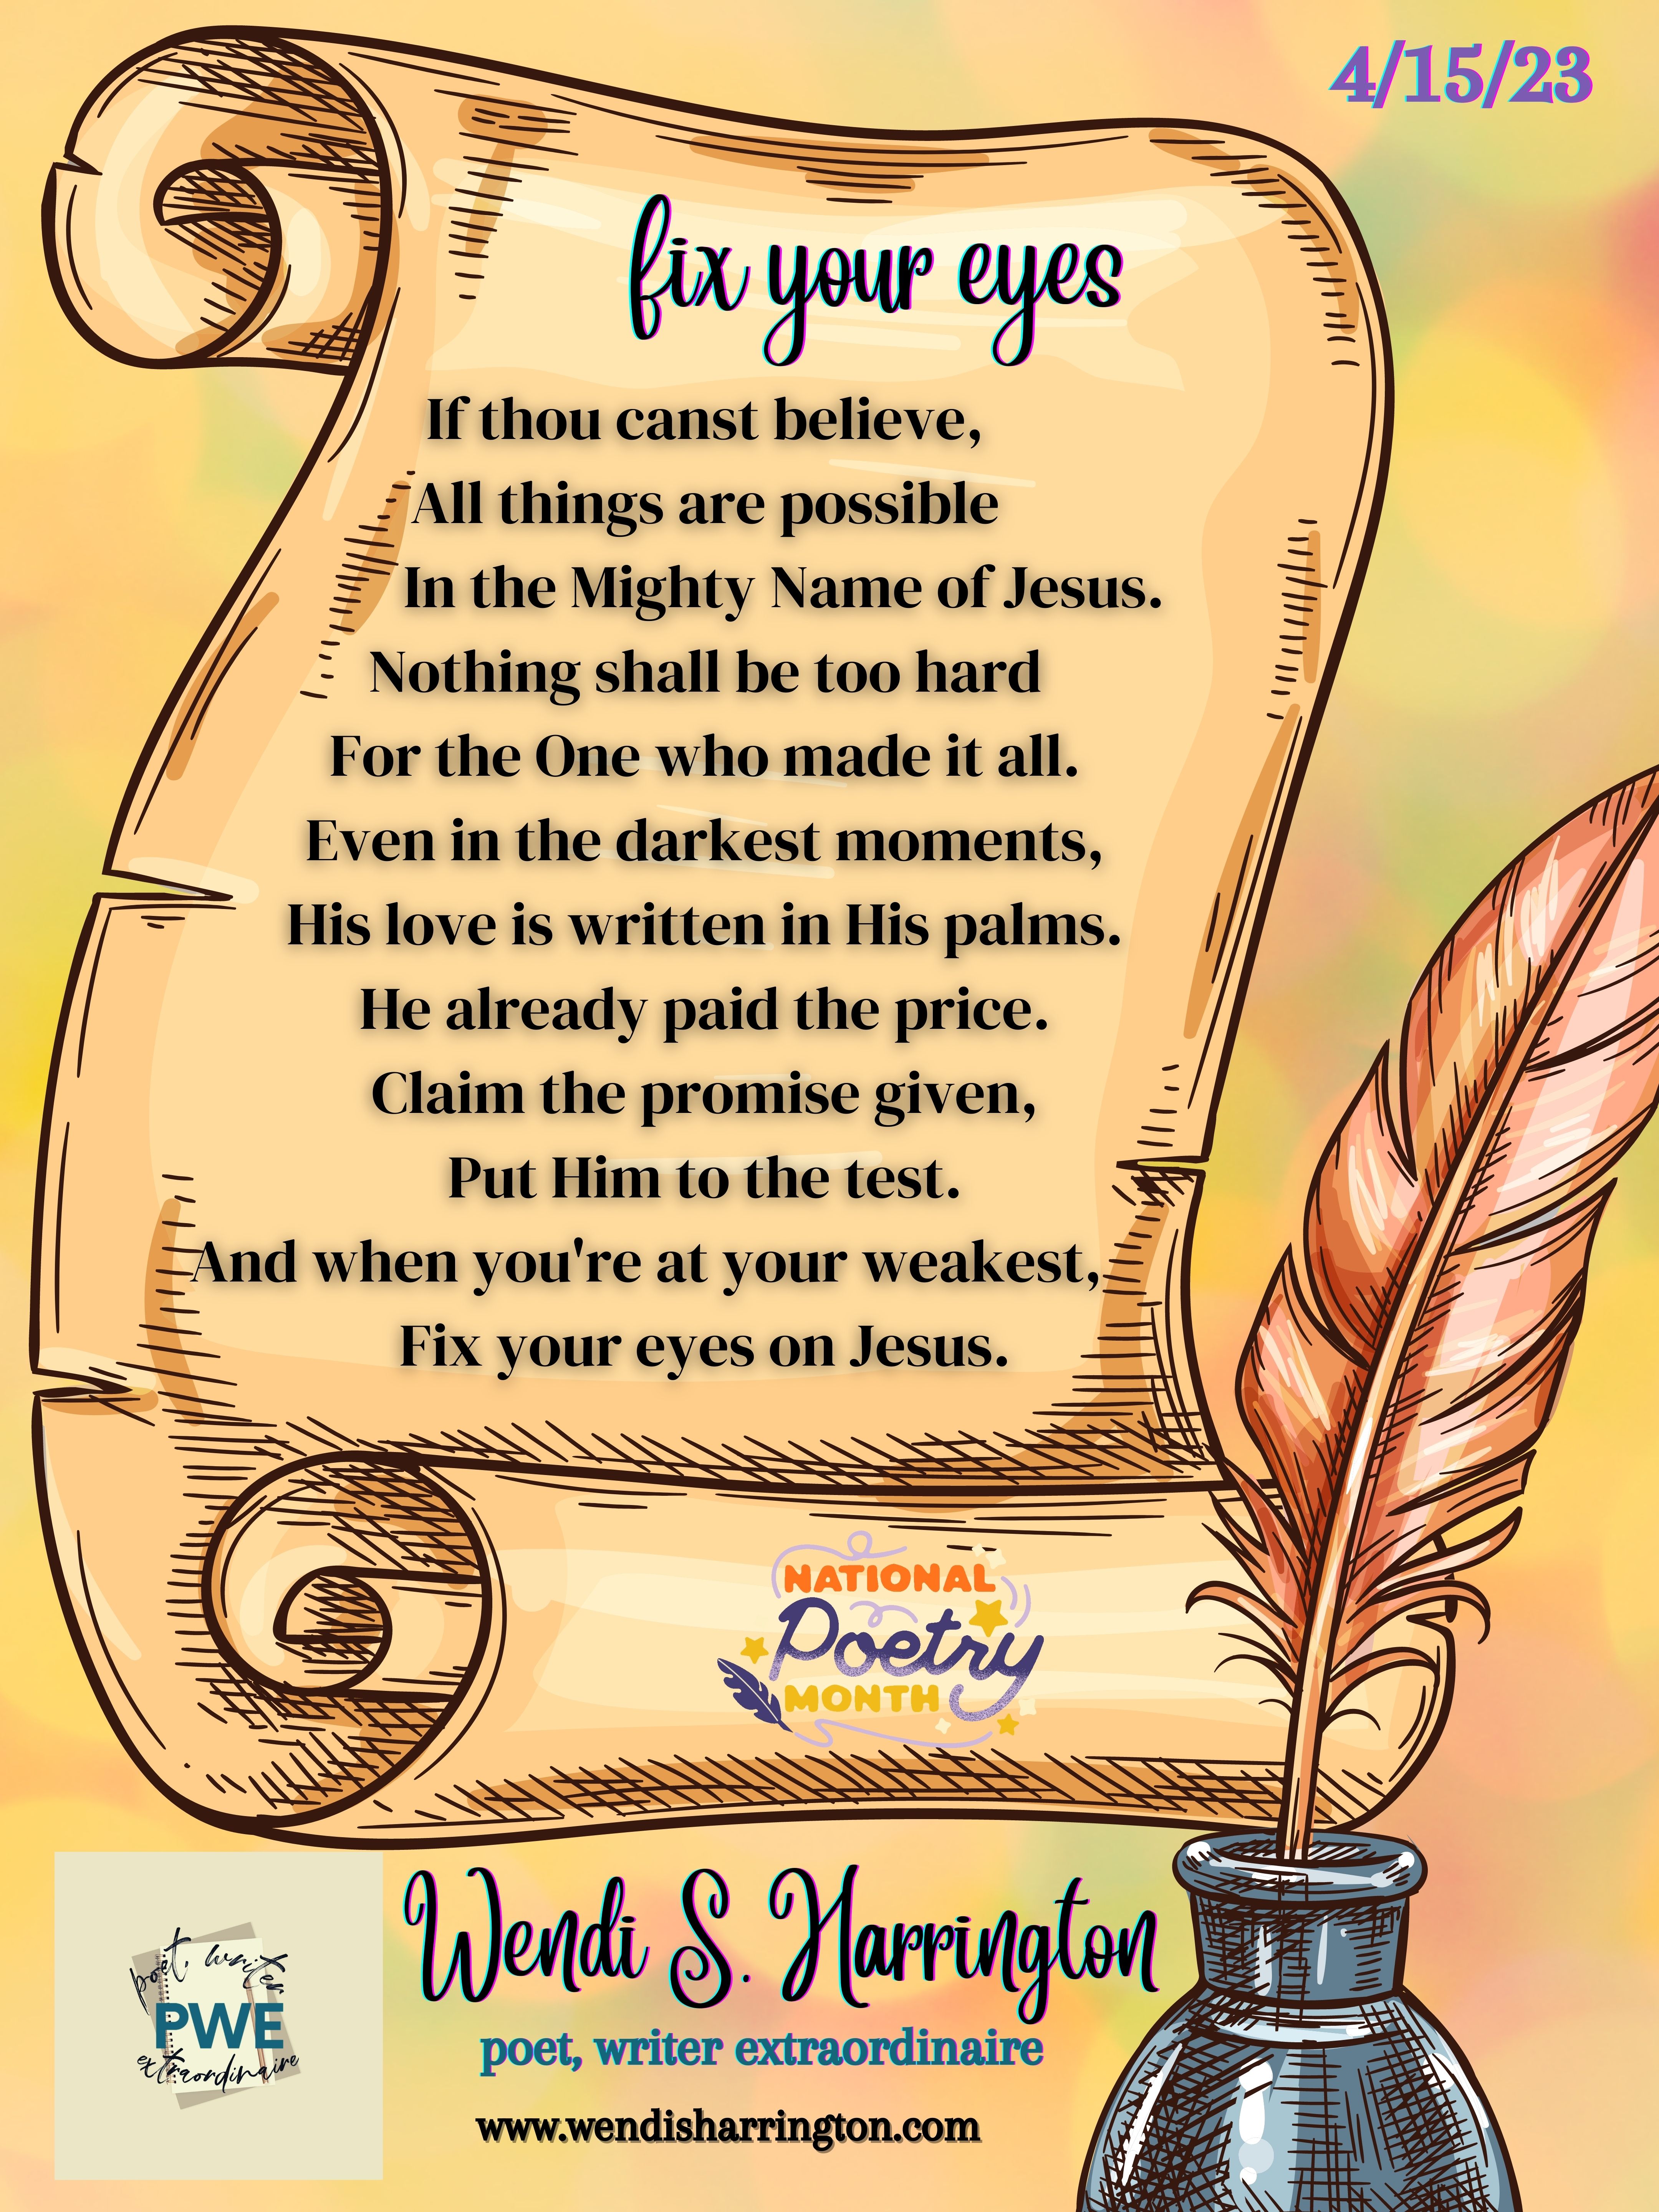 4/15/23
fix your eyes
If thou canst believe,
All things are possible
In the Mighty Name of Jesus.
Nothing shall be too hard
For the One who made it all.
Even in the darkest moments,
His love is written in His palms.
He already paid the price.
Claim the promise given,
Put Him to the test.
And when you're at your weakest,
Fix your eyes on Jesus.
NATIONAL
Poetry
MONTH
poet, writer
PWE
extraordinaire
Wendi S. Harrington
poet, writer extraordinaire
www.wendisharrington.com